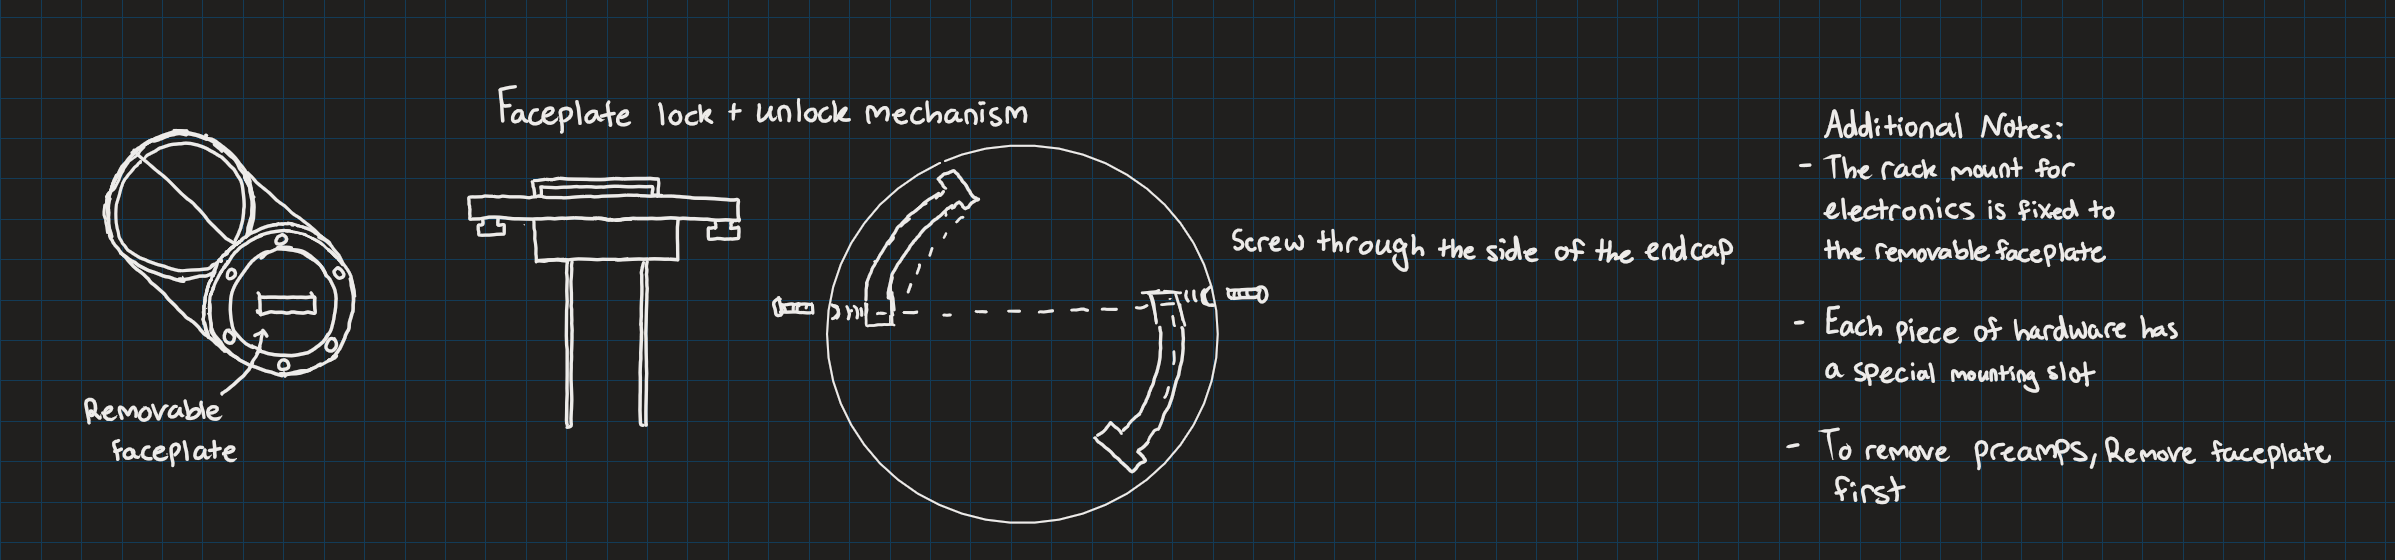 Faceplate lock + unlock mechanism
Removable
faceplate
Screw through the side of the endcap
Additional Notes:
- The rack mount for
electronics is fixed to
the removable faceplate
- Each piece of hardware has
a special mounting slot
- To remove preamps, Remove faceplate
first